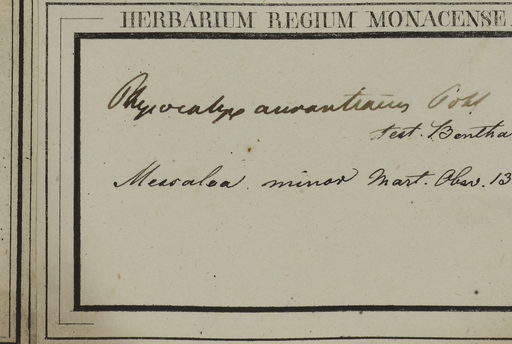 HERBARIUM REGIUM MONACENSE.
Physocalyx aurantiacus Pohl
test. Bentha
Mescalea. minor Mart. Obs. 13